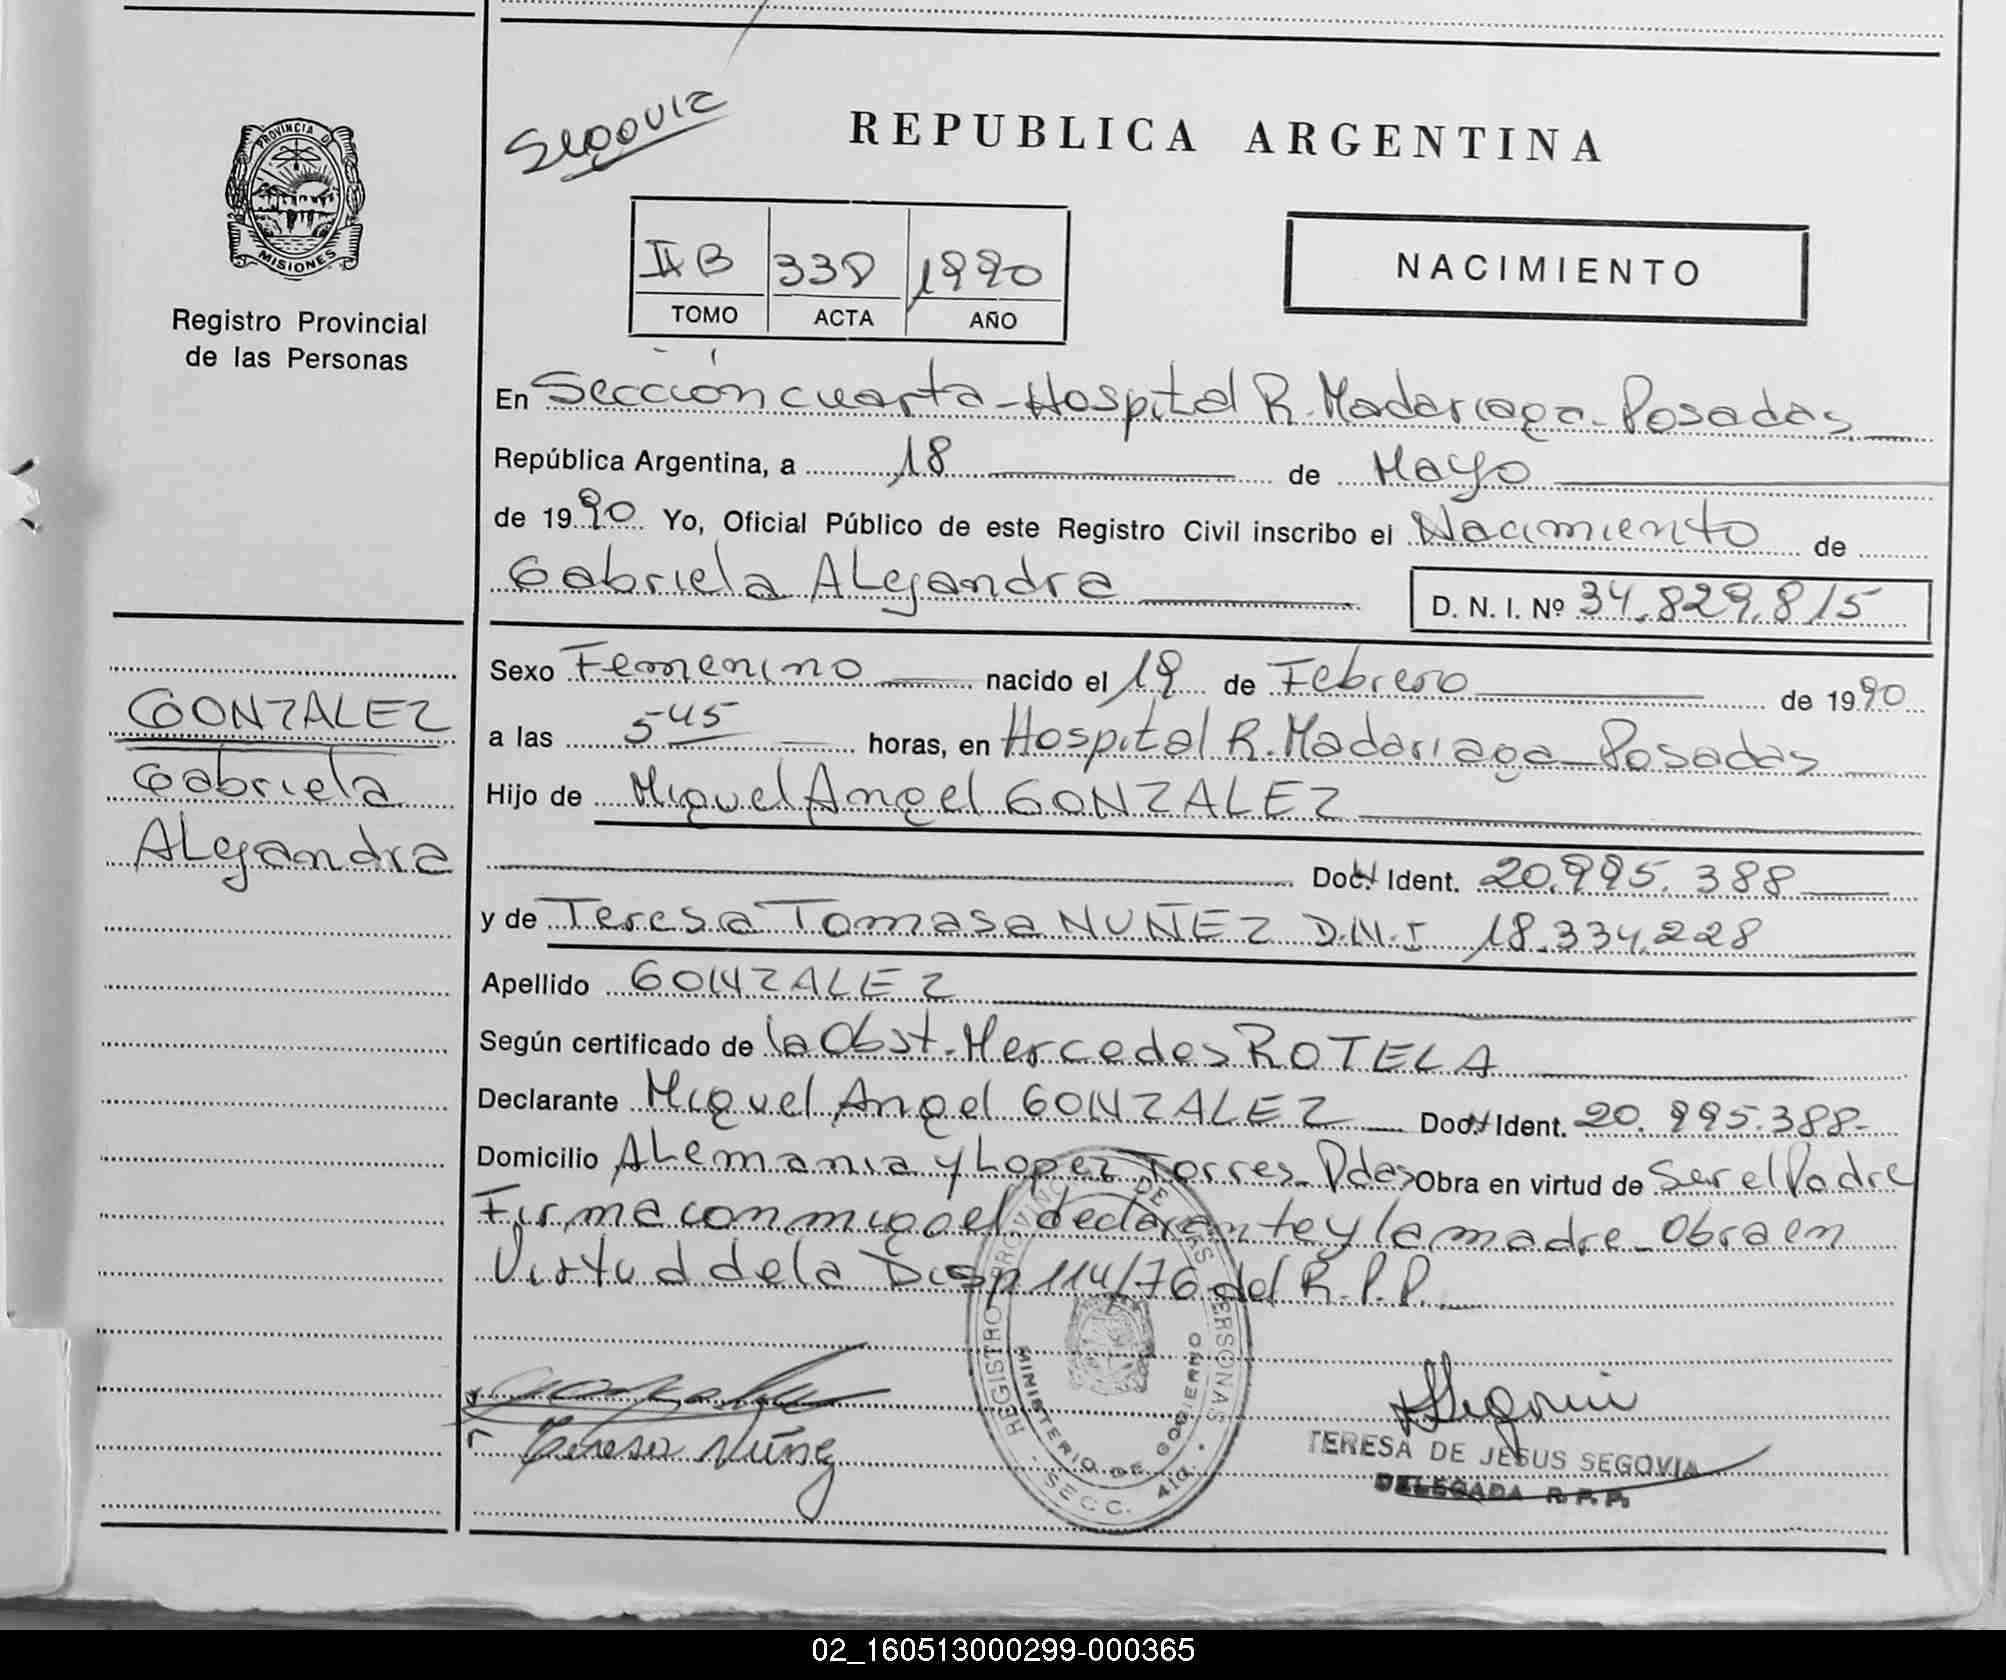 Segovia
REPUBLICA ARGENTINA
PROVINCIA DE
MISIONES
Registro Provincial
de las Personas
II B 338 1990
TOMO ACTA AÑO
NACIMIENTO
En Sección cuarta - Hospital R. Madariaga - Posadas
República Argentina, a 18 de Mayo
de 1990 Yo, Oficial Público de este Registro Civil inscribo el Nacimiento de
Gabriela ALejandra D. N. I. Nº 34.829.815
GONZALEZ
Gabriela
ALejandra
Sexo Femenino nacido el 19 de Febrero de 1990
a las 5 45 horas, en Hospital R. Madariaga - Posadas
Hijo de Miguel Angel GONZALEZ
Doc. Ident. 20.995.388
y de Teresa Tomasa NUÑEZ D.N.I 18.334.228
Apellido GONZALEZ
Según certificado de la Obst. Mercedes ROTELA
Declarante Miguel Angel GONZALEZ Doc. Ident. 20.995.388-
Domicilio ALemania y Lopez Torres - Pdas Obra en virtud de Ser el Padre
Firma conmigo el declarante y la madre - Obra en
Virtud de la Disp 114/76 del R.P.P.
REGISTRO PROVINCIAL DE LAS PERSONAS
MINISTERIO DE GOBIERNO
SECC. 4ta.
Teresa Nuñez
Segovia
TERESA DE JESUS SEGOVIA
DELEGADA R.P.P.
02_160513000299-000365